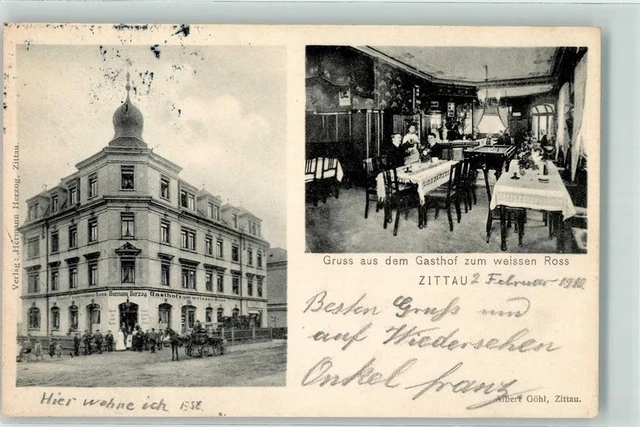 Verlag: Hermann Herzog, Zittau.
Hermann Herzog, Gasthof zum weissen Ross
Gruss aus dem Gasthof zum weissen Ross
ZITTAU 2 Februar 1910.
Besten Gruß und
auf Wiedersehen
Onkel Franz
Albert Göhl, Zittau.
Hier wohne ich